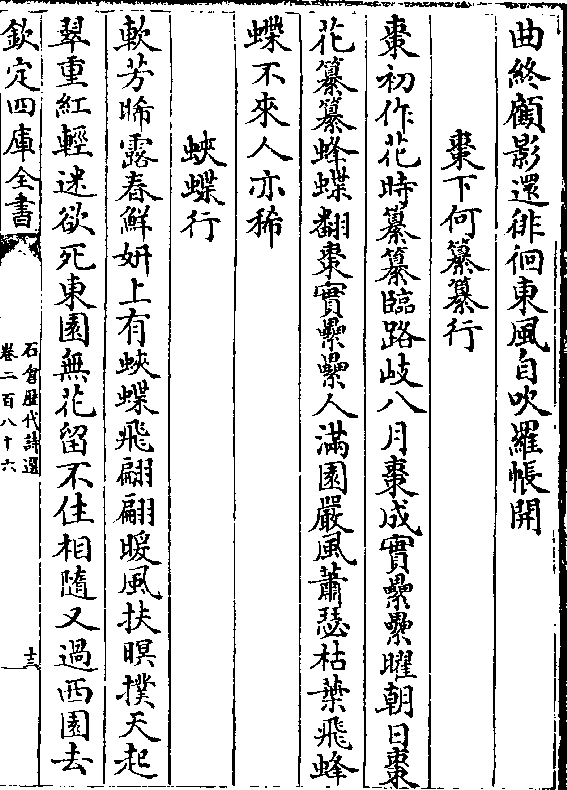 曲終顧影還徘徊東風自吹羅帳開
棗下何纂纂行
棗初作花時纂纂臨路岐八月棗成實纍纍曜朝日棗
花纂纂蜂蝶翻棗實纍纍人滿園嚴風蕭瑟枯葉飛蜂
蝶不來人亦稀
蛺蝶行
軟芳晞露春鮮妍上有蛺蝶飛翩翩暖風扶暝撲天起
翠重紅輕迷欲死東園無花留不住相隨又過西園去
欽定四庫全書
石倉歷代詩選
卷二百八十六
十三